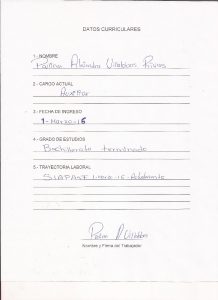 DATOS CURRICULARES
1.- NOMBRE
Paulina Alejandra Villalobos Rivas
2.- CARGO ACTUAL
Auxiliar
3.- FECHA DE INGRESO
1-Marzo-16
4.- GRADO DE ESTUDIOS
Bachillerato terminado
5.- TRAYECTORIA LABORAL
SIAPASF 16-Adelante
Villalobos
Nombre y Firma del Trabajador